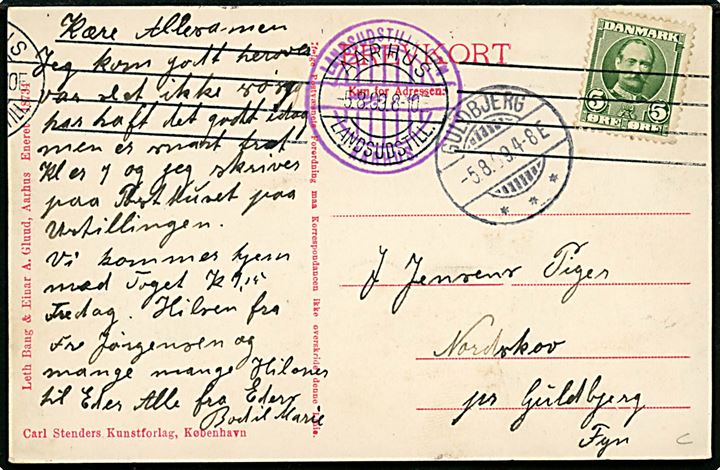 Kære Allesamen
Jeg kom godt herover
var slet ikke søsyg
har haft det godt idag
men er snart træt
Kl er 7 og jeg skriver
paa Posthuset paa
Udstillingen.
Vi kommer hjem
med Toget Kl 9,15
Fredag. Hilsen fra
Fre Jørgensen og
mange mange Hilsner
til Eder Alle fra Eders
Bodil Marie
Carl Stenders Kunstforlag, København
Leth Bang & Einar A. Gluud, Aarhus Eneret
BREVKORT
Kun for Adressen.
Forordning maa Korrespondancen ikke overskride denne
LANDSUDSTILLINGEN
AARHUS
LANDSUDSTILL.
GULDBJERG
-5.8.09.4-8E
DANMARK
5 5
ØRE ØRE
J Jensens Piger
Nordskov
pr Guldbjerg
Fyn
C